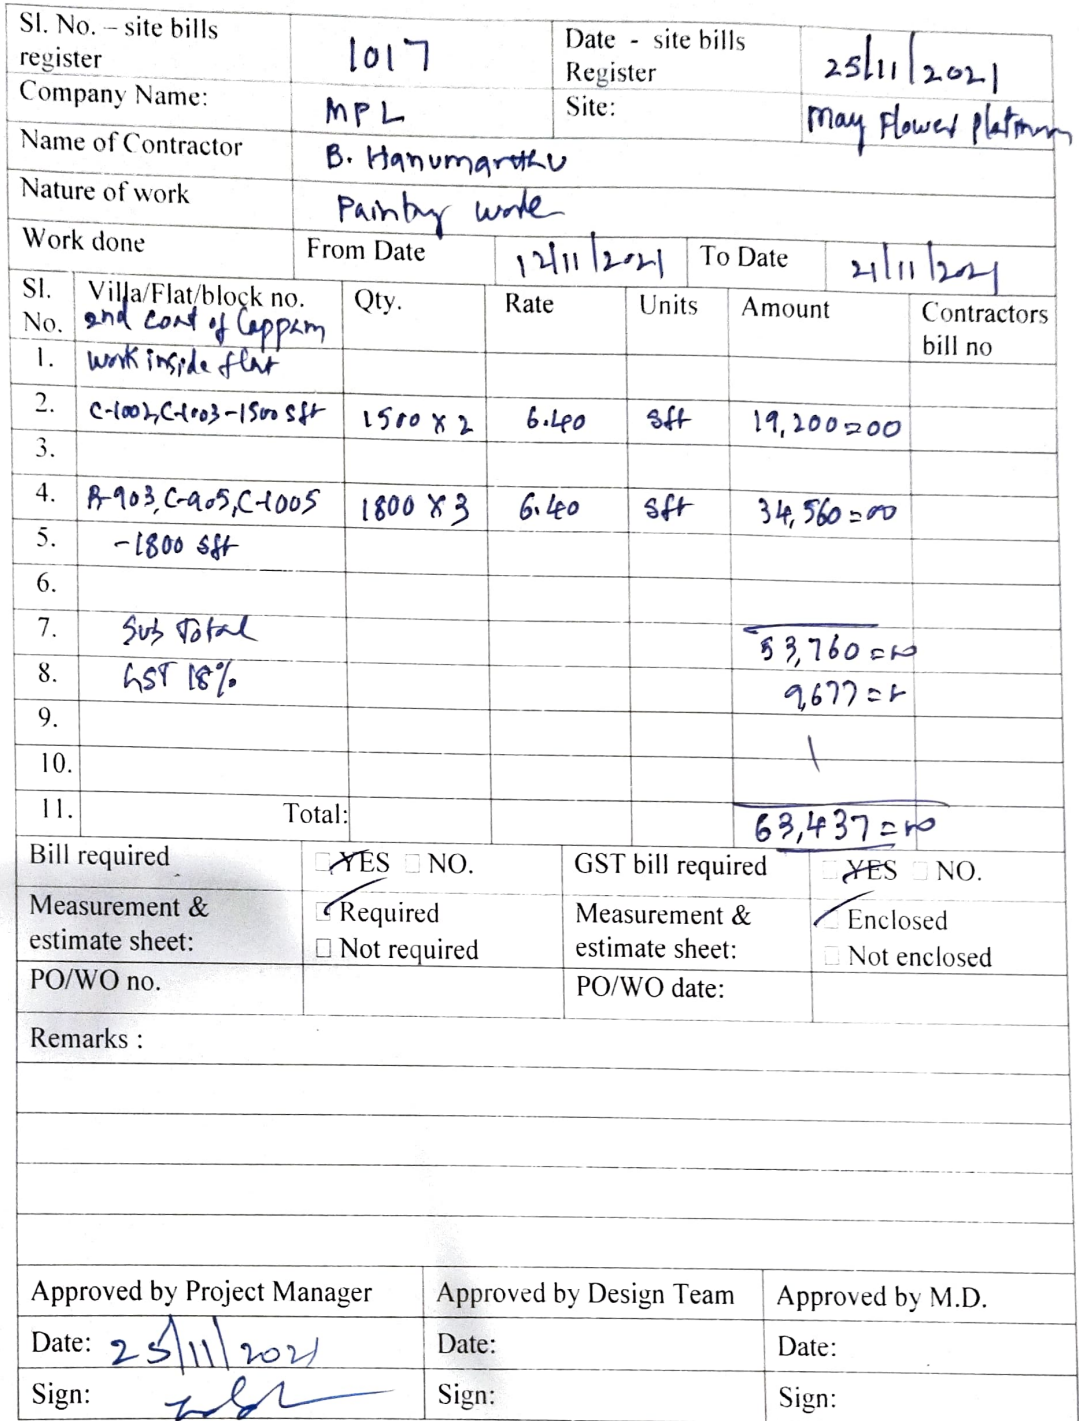 Sl. No. – site bills register 1017 Date - site bills Register 25/11/2021
Company Name: MPL Site: May Flower Platinum
Name of Contractor B. Hanumanthu
Nature of work Painting work
Work done From Date 12/11/2021 To Date 21/11/2021
Sl. No. Villa/Flat/block no. Qty. Rate Units Amount Contractors bill no
2nd coat of Lappam
1. work inside flat
2. C-1002, C-1003 - 1500 sft 1500 x 2 6.40 sft 19,200=00
3.
4. A-903, C-905, C-1005 1800 x 3 6.40 sft 34,560=00
5. - 1800 sft
6.
7. Sub Total 53,760=00
8. GST 18% 9,677=00
9.
10.
11. Total: 63,437=00
Bill required YES NO. GST bill required YES NO.
Measurement & estimate sheet: Required Measurement & estimate sheet: Enclosed
Not required Not enclosed
PO/WO no. PO/WO date:
Remarks :
Approved by Project Manager Approved by Design Team Approved by M.D.
Date: 25/11/2021 Date: Date:
Sign: Sign: Sign: